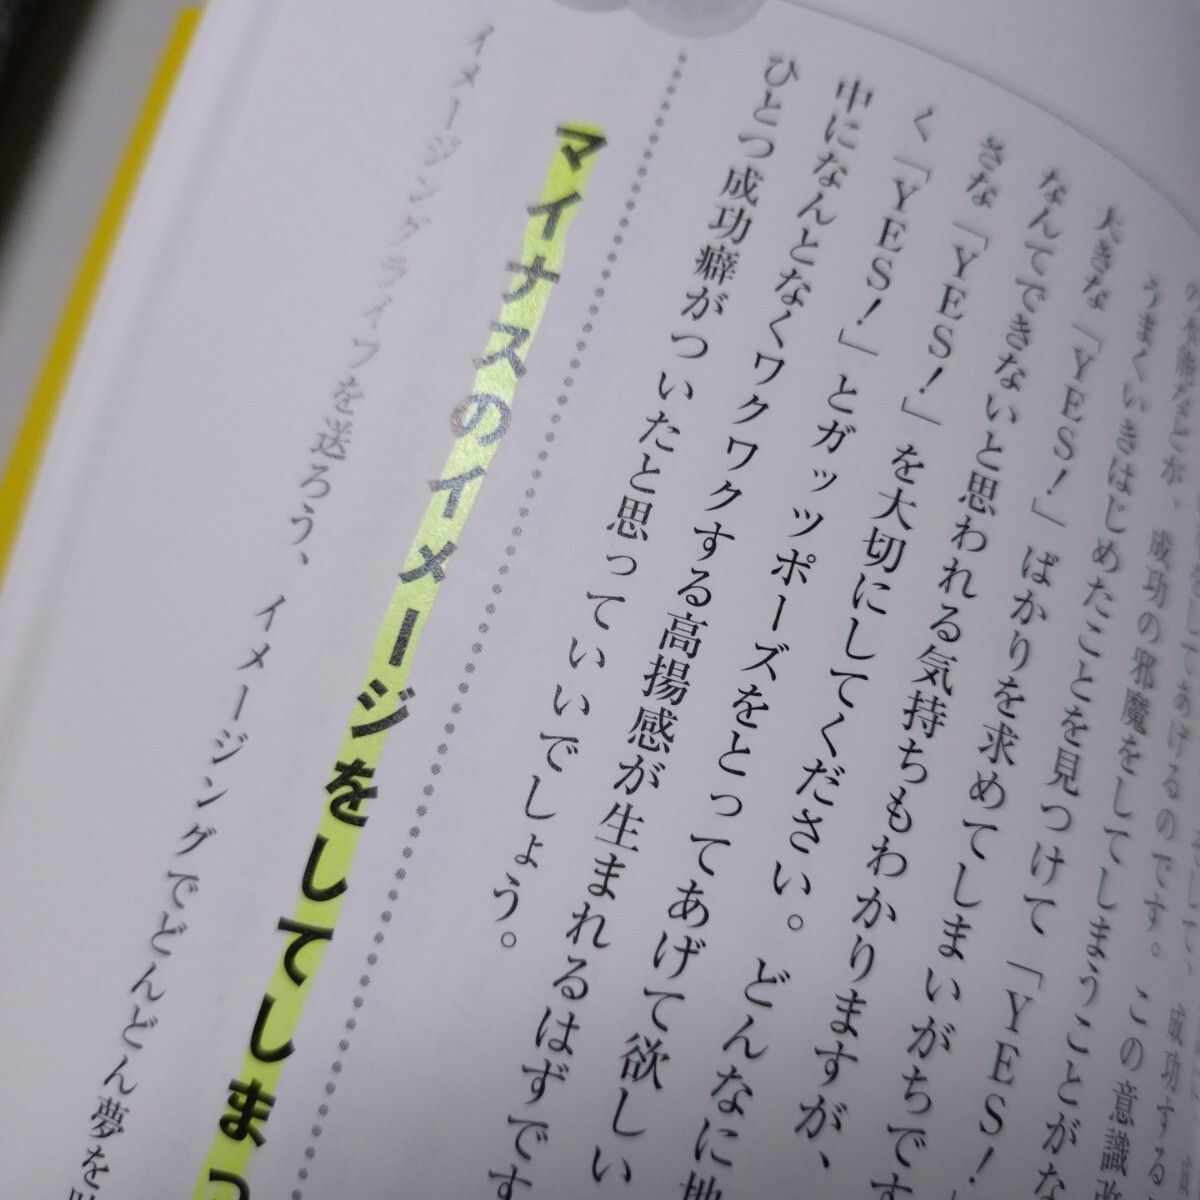 成功の邪魔をしてしまうことがな
うまくいきはじめたことを見つけて「YES!
大きな「YES!」ばかりを求めてしまいがちです
なんてできないと思われる気持ちもわかりますが、
さな「YES!」を大切にしてください。どんなに
く「YES!」とガッツポーズをとってあげて欲しい
中になんとなくワクワクする高揚感が生まれるはずです
ひとつ成功癖がついたと思っていいでしょう。
マイナスのイメージをしてしまっ
イメージングライフを送ろう、イメージングでどんどん夢を